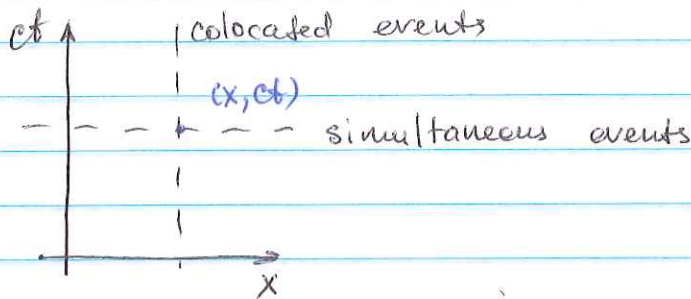 ct
colocated events
(x, ct)
simultaneous events
x